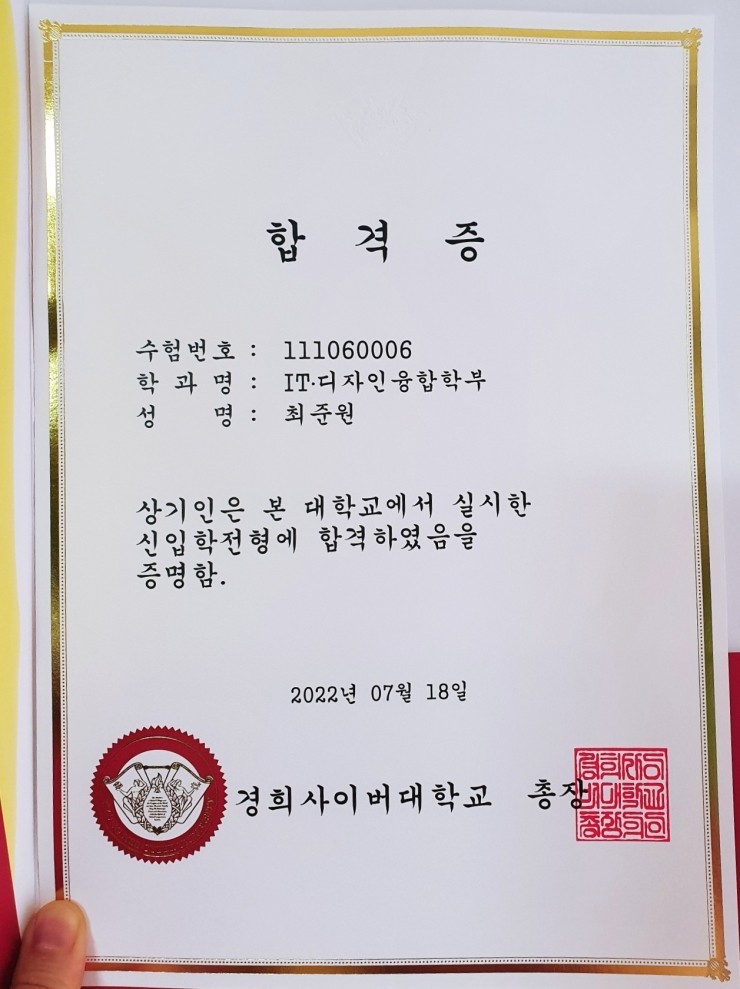 합 격 증
수험번호 : 111060006
학 과 명 : IT·디자인융합학부
성 명 : 최준원
상기인은 본 대학교에서 실시한
신입학전형에 합격하였음을
증명함.
2022년 07월 18일
경희사이버대학교 총장